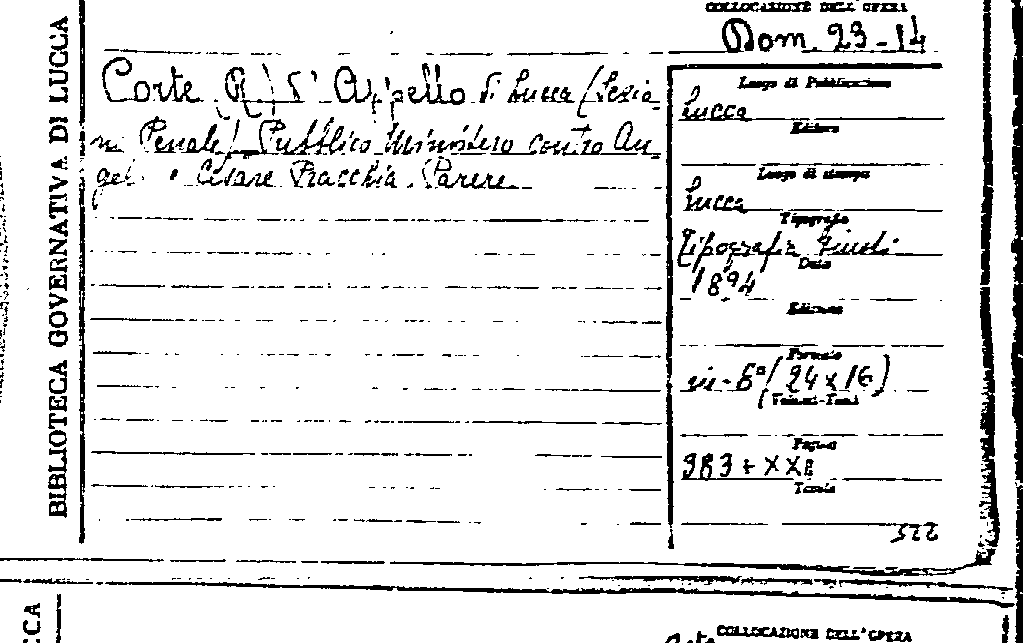 BIBLIOTECA GOVERNATIVA DI LUCCA
COLLOCAZIONE DELL'OPERA
Dom. 23-14
Corte (R.) d'Appello di Lucca (Sezio-
ne Penale). Pubblico Ministero contro An-
gelo e Cesare Pracchia. Parere
Luogo di Pubblicazione
Lucca
Editore
Luogo di stampa
Lucca
Tipografia
Tipografia Giusti
Data
1894
Edizione
Formato
in-8° (24x16)
Volumi-Tomi
Pagine
383 + XX
Tavole
522
COLLOCAZIONE DELL'OPERA